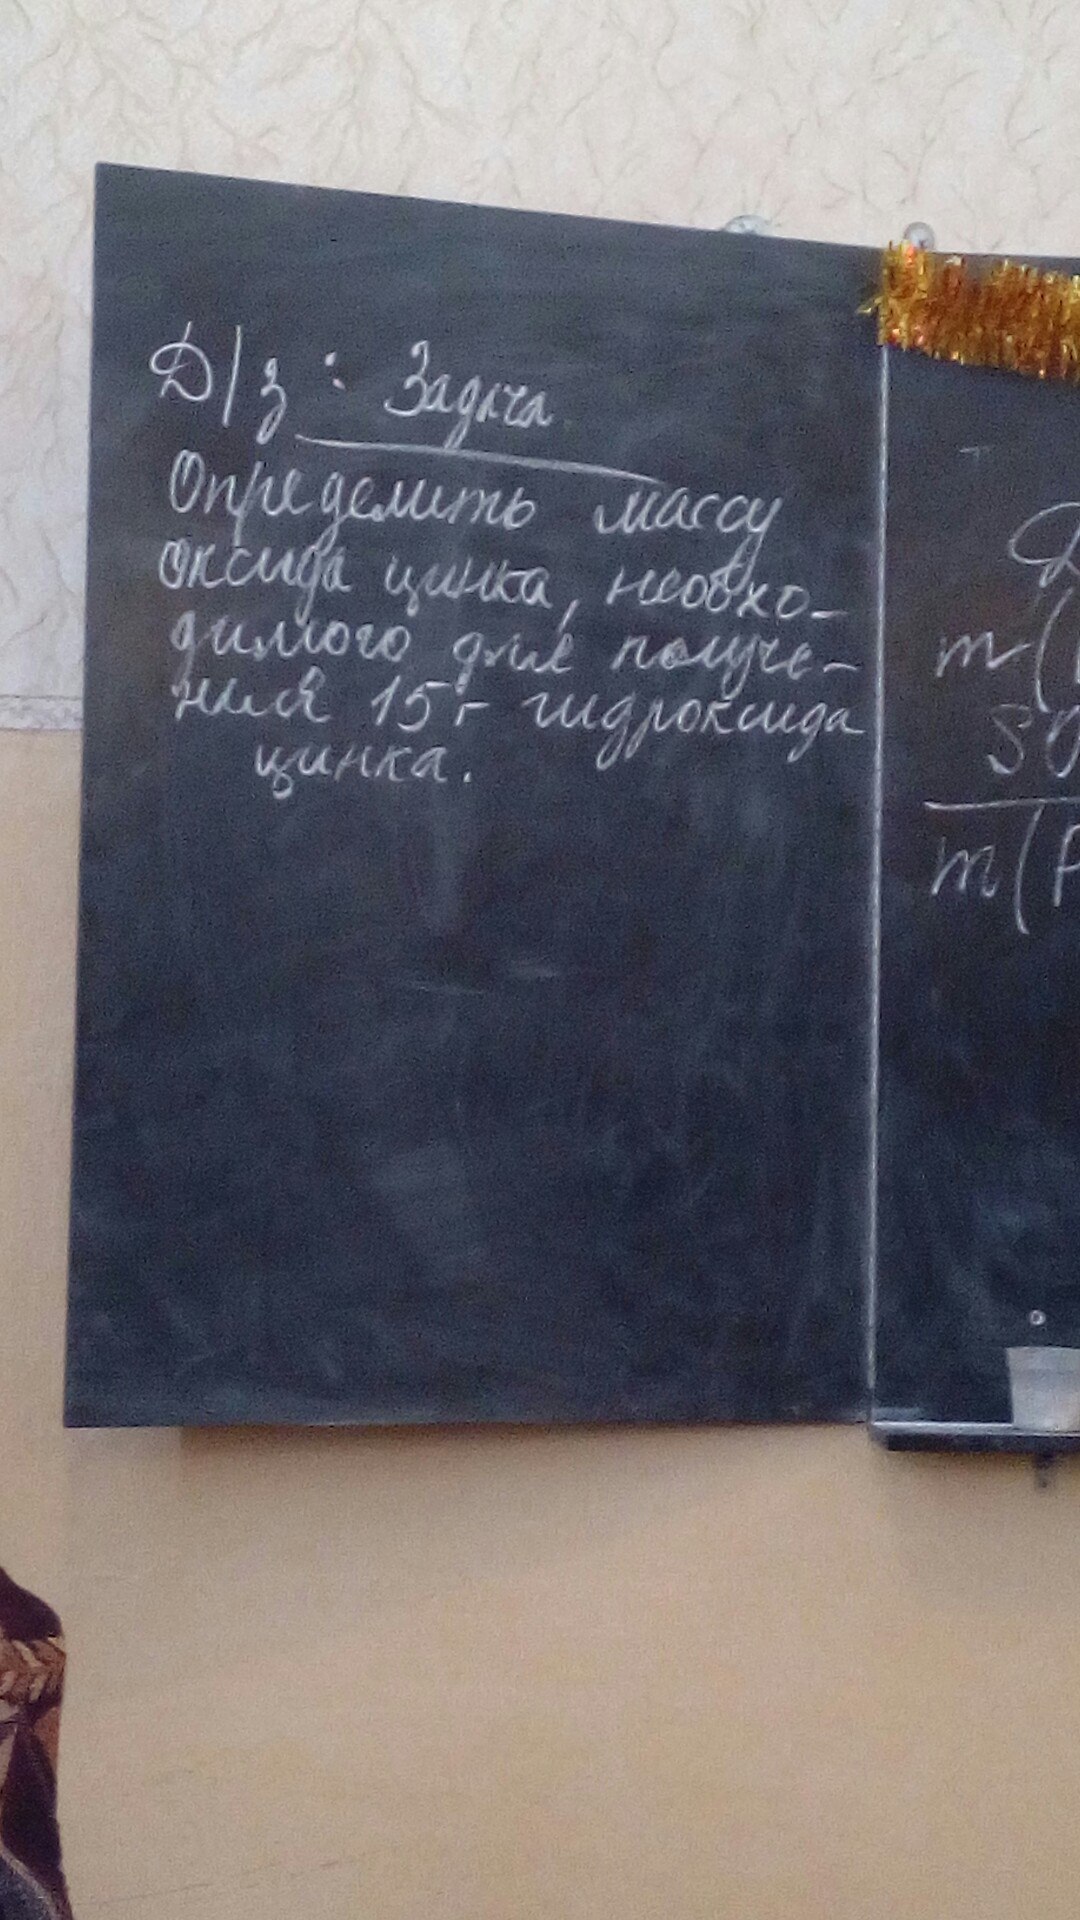 Д/з: Задача
Определить массу
оксида цинка, необхо-
димого для получе-
ния 15г гидроксида
цинка.
m(
m(P